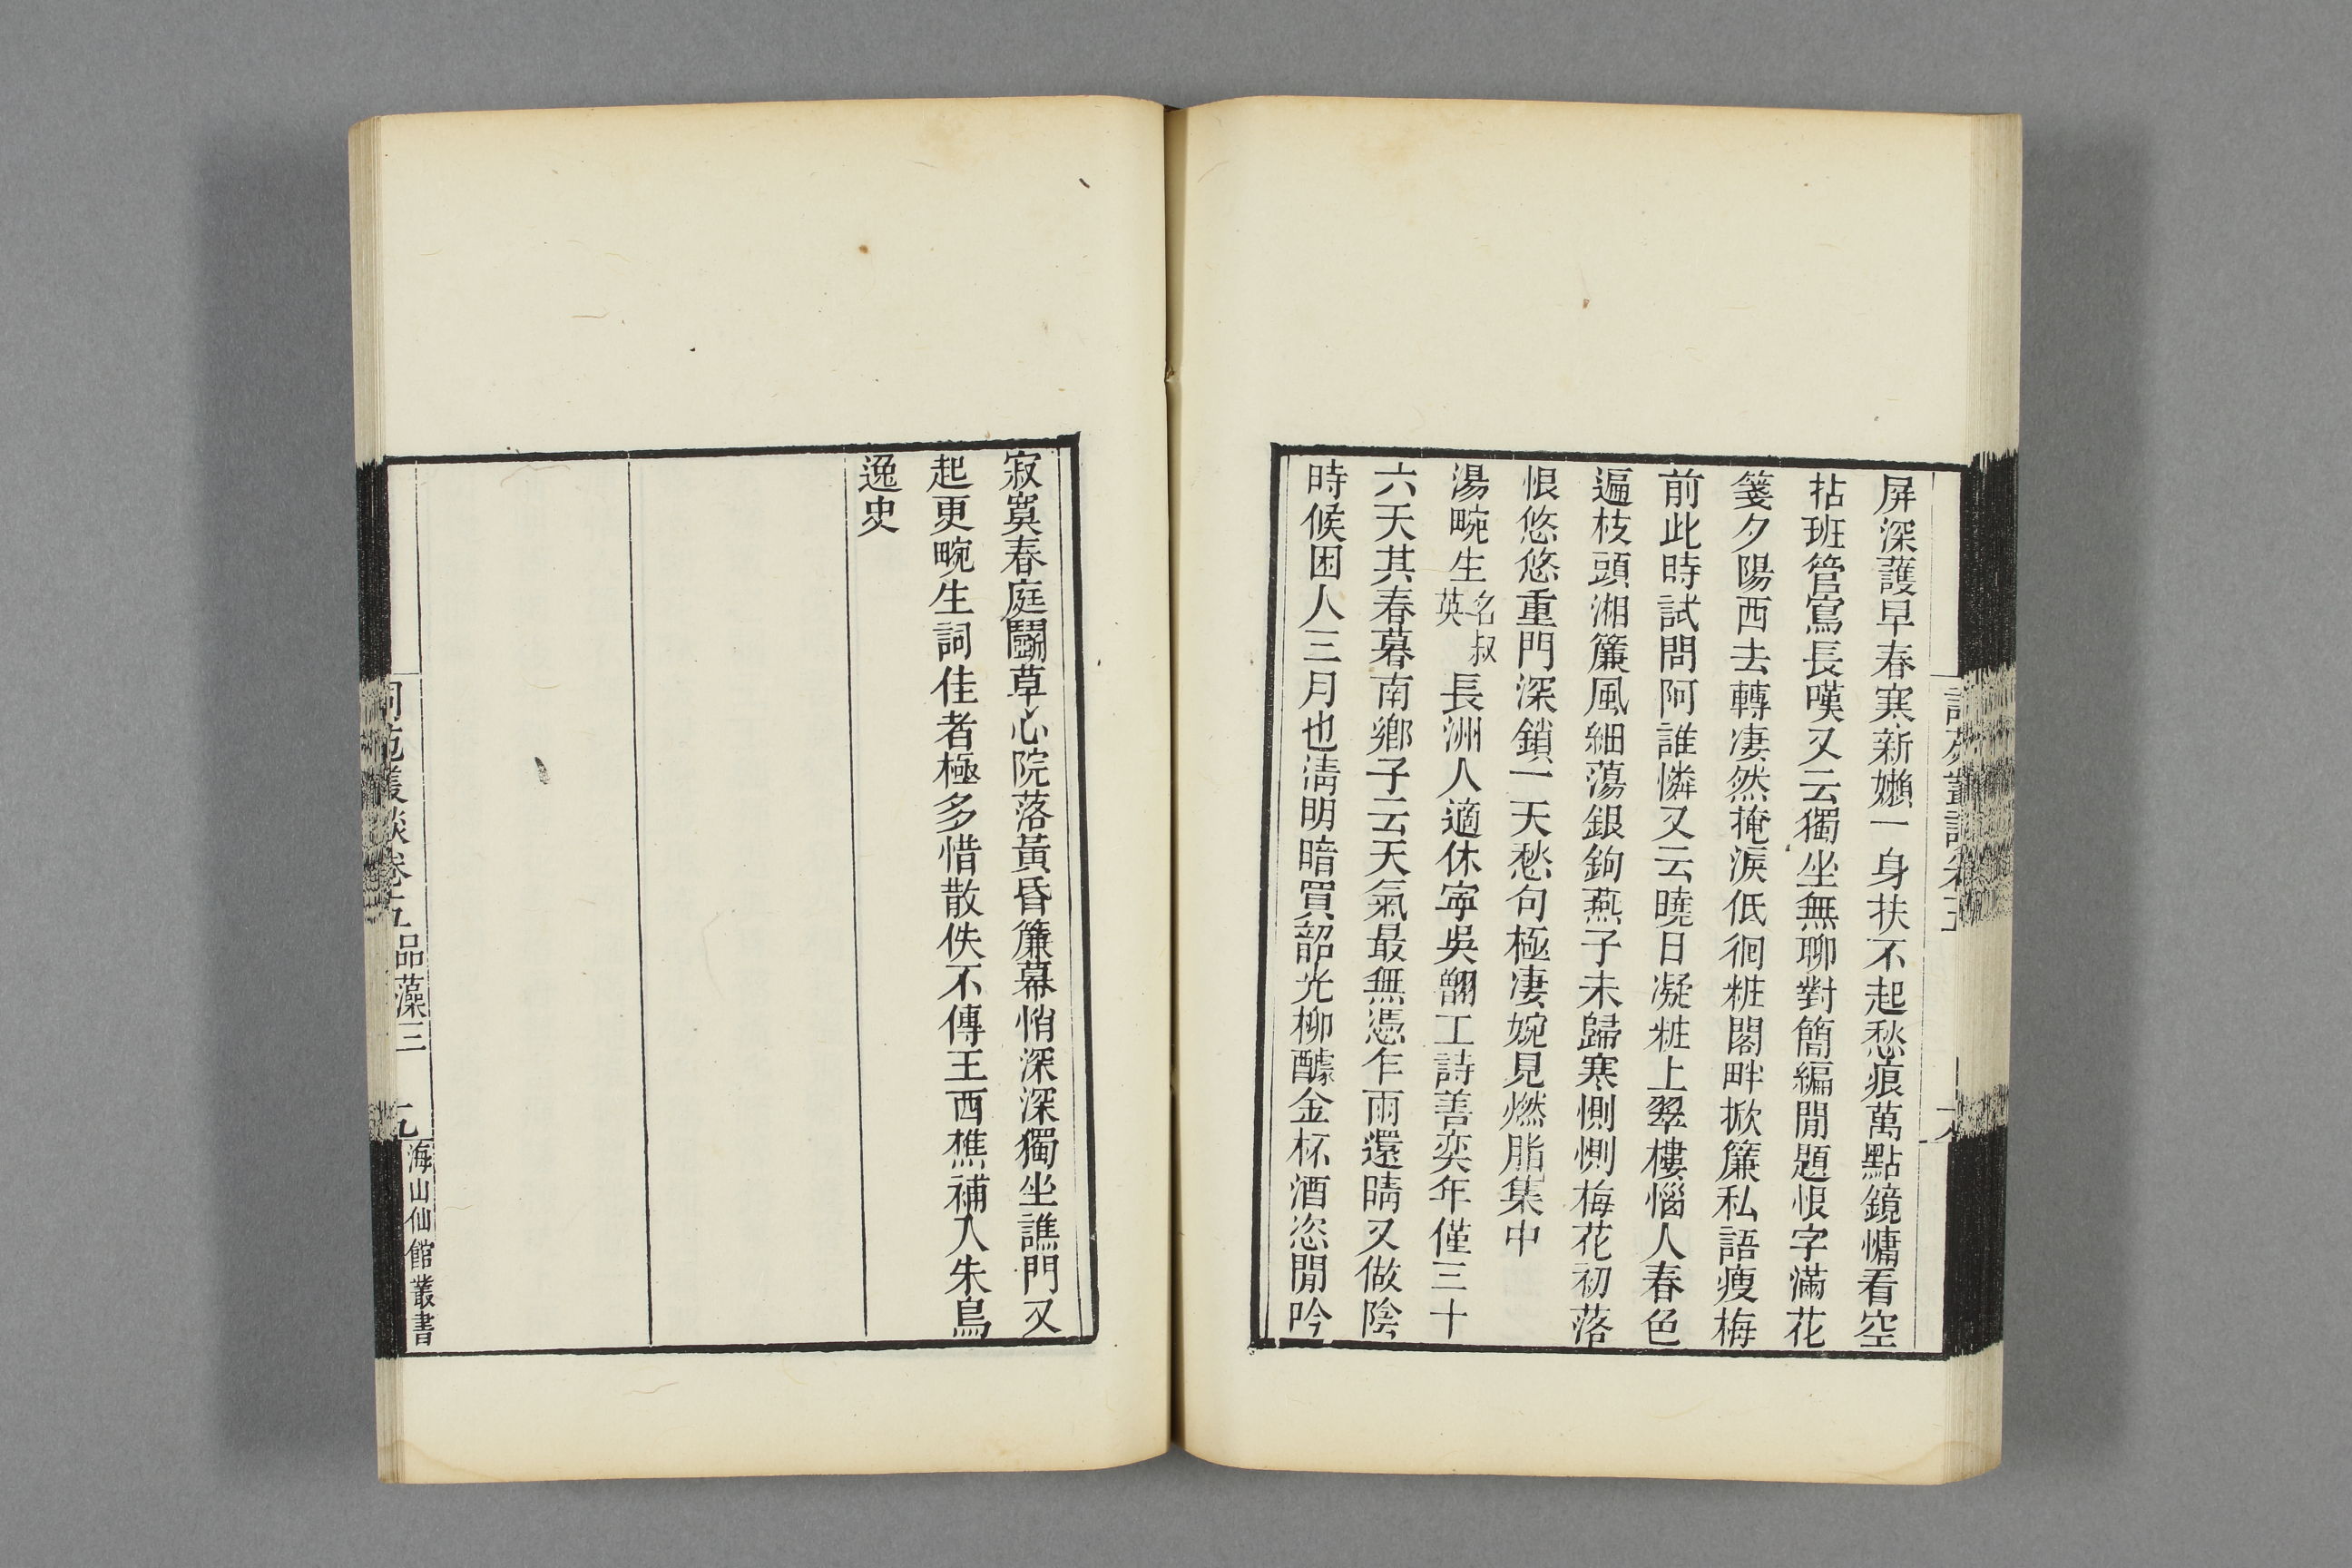 屏深護早春寒新嬾一身扶不起愁痕萬點鏡慵看空
拈班管寫長嘆又云獨坐無聊對簡編閒題恨字滿花
箋夕陽西去轉凄然掩淚低徊粧閣畔掀簾私語瘦梅
前此時試問阿誰憐又云曉日凝粧上翠樓惱人春色
遍枝頭湘簾風細蕩銀鉤燕子未歸寒惻惻梅花初落
恨悠悠重門深鎖一天愁句極凄婉見燃脂集中
湯畹生名叔英長洲人適休寧吳翷工詩善奕年僅三十
六夭其春暮南鄉子云天氣最無憑乍雨還晴又做陰
時候困人三月也淸明暗買韶光柳釀金杯酒恣閒吟
寂寞春庭鬬草心院落黃昏簾幕悄深深獨坐譙門又
起更畹生詞佳者極多惜散佚不傳王西樵補入朱鳥
逸史
詞苑叢談卷五品藻三
海山仙館叢書